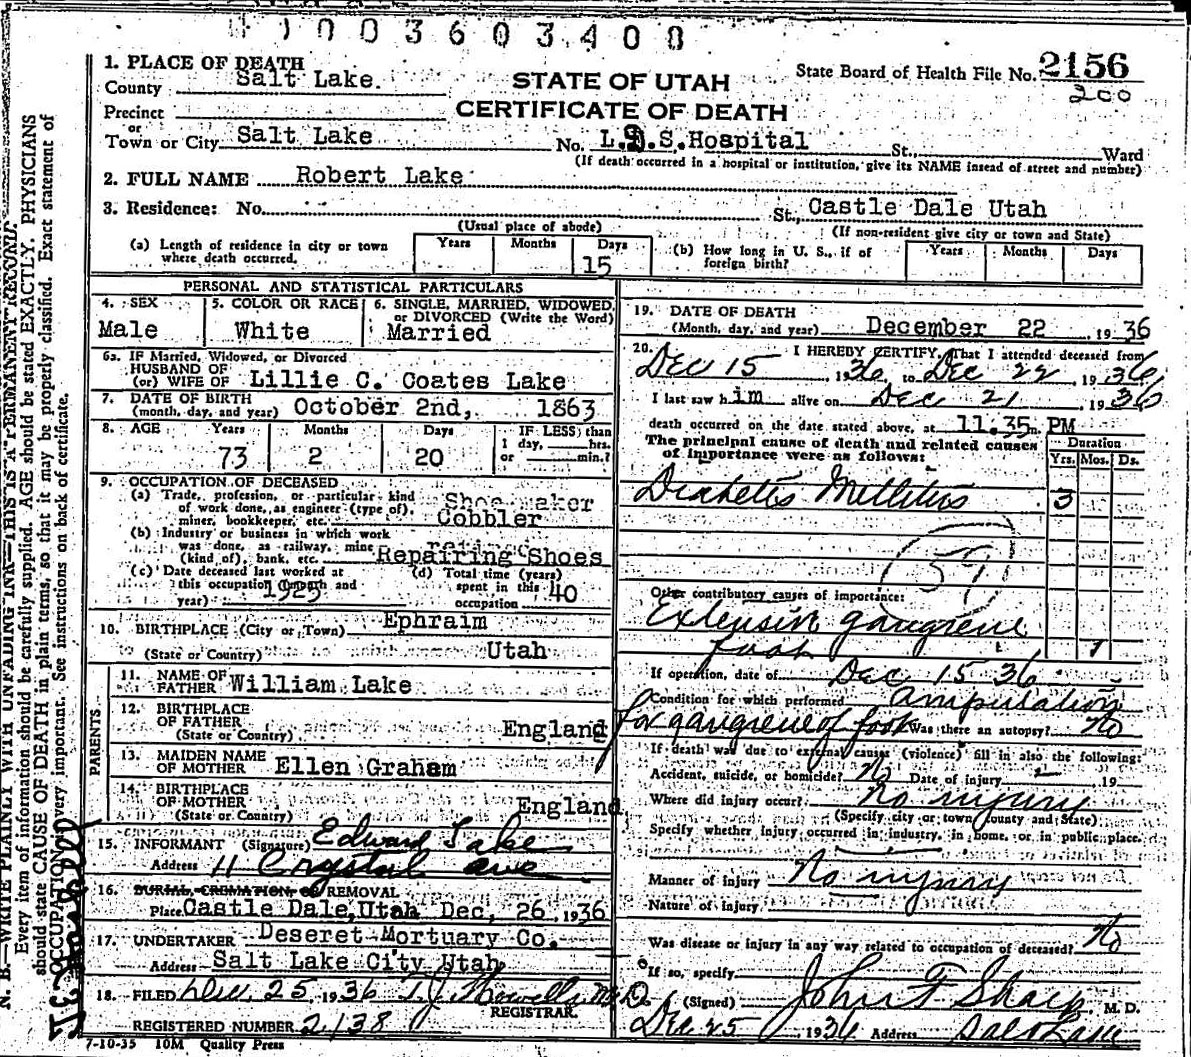 1003603400
1. PLACE OF DEATH
County Salt Lake.
STATE OF UTAH
State Board of Health File No. 2156
CERTIFICATE OF DEATH
200
Precinct
or
Town or City Salt Lake No. L.D.S. Hospital St., Ward
(If death occurred in a hospital or institution, give its NAME insead of street and number)
2. FULL NAME Robert Lake
3. Residence: No. St., Castle Dale Utah
(Usual place of abode) (If non-resident give city or town and State)
(a) Length of residence in city or town where death occurred. Years Months Days 15
(b) How long in U. S., if of foreign birth? Years Months Days
PERSONAL AND STATISTICAL PARTICULARS
4. SEX Male
5. COLOR OR RACE White
6. SINGLE, MARRIED, WIDOWED, or DIVORCED (Write the Word) Married
6a. IF Married, Widowed, or Divorced
HUSBAND OF
(or) WIFE OF Lillie C. Coates Lake
7. DATE OF BIRTH
(month, day, and year) October 2nd, 1863
8. AGE Years 73 Months 2 Days 20 IF LESS than 1 day, hrs. or min.?
9. OCCUPATION OF DECEASED
(a) Trade, profession, or particular kind
of work done, as engineer (type of),
miner, bookkeeper, etc. Shoe maker
Cobbler
(b) Industry or business in which work
was done, as railway, mine
(kind of), bank, etc. Repairing Shoes
(c) Date deceased last worked at
this occupation (month and
year) 1925
(d) Total time (years)
spent in this
occupation 40
10. BIRTHPLACE (City or Town) Ephraim
(State or Country) Utah
PARENTS
11. NAME OF
FATHER William Lake
12. BIRTHPLACE
OF FATHER
(State or Country) England
13. MAIDEN NAME
OF MOTHER Ellen Graham
14. BIRTHPLACE
OF MOTHER
(State or Country) England
15. INFORMANT (Signature) Edward Lake
Address 11 Crystal ave
16. BURIAL, CREMATION, OR REMOVAL
Place Castle Dale, Utah Dec, 26, 1936
17. UNDERTAKER Deseret Mortuary Co.
Address Salt Lake City Utah
18. FILED Dec. 25, 1936 T. J. Howells M.D.
REGISTRAR.
REGISTERED NUMBER 2138
7-10-35 10M Quality Press
19. DATE OF DEATH
(Month, day, and year) December 22 1936
20. I HEREBY CERTIFY, That I attended deceased from
Dec 15 1936, to Dec 22 1936
I last saw him alive on Dec 21 1936
death occurred on the date stated above, at 11.35m. PM
The principal cause of death and related causes
of importance were as follows:
Duration
Yrs. Mos. Ds.
Diabetis Mellitus 3
59
Other contributory causes of importance:
Extensin gangrene
foot 1
If operation, date of Dec 15 36
Condition for which performed Amputation
for gangrene of foot Was there an autopsy? No
If death was due to external causes (violence) fill in also the following:
Accident, suicide, or homicide? No Date of injury 19
Where did injury occur? No injury
(Specify city or town county and State)
Specify whether injury occurred in industry, in home, or in public place.
Manner of injury No injury
Nature of injury
Was disease or injury in any way related to occupation of deceased? No
If so, specify
(Signed) John F Sharp M. D.
Dec 25 1936 Address Salt Lake
N. B.—WRITE PLAINLY WITH UNFADING INK—THIS IS A PERMANENT RECORD.
Every item of information should be carefully supplied. AGE should be stated EXACTLY. PHYSICIANS
should state CAUSE OF DEATH in plain terms, so that it may be properly classified. Exact statement of
OCCUPATION very important. See instructions on back of certificate.